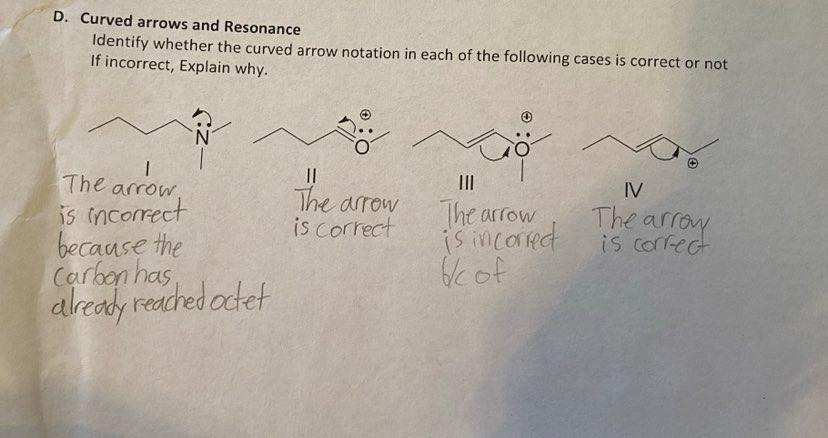 D. Curved arrows and Resonance
Identify whether the curved arrow notation in each of the following cases is correct or not
If incorrect, Explain why.
N
O
O
I
II
III
IV
The arrow
is incorrect
because the
Carbon has
already reached octet
The arrow
is correct
The arrow
is incorrect
b/c of
The arrow
is correct